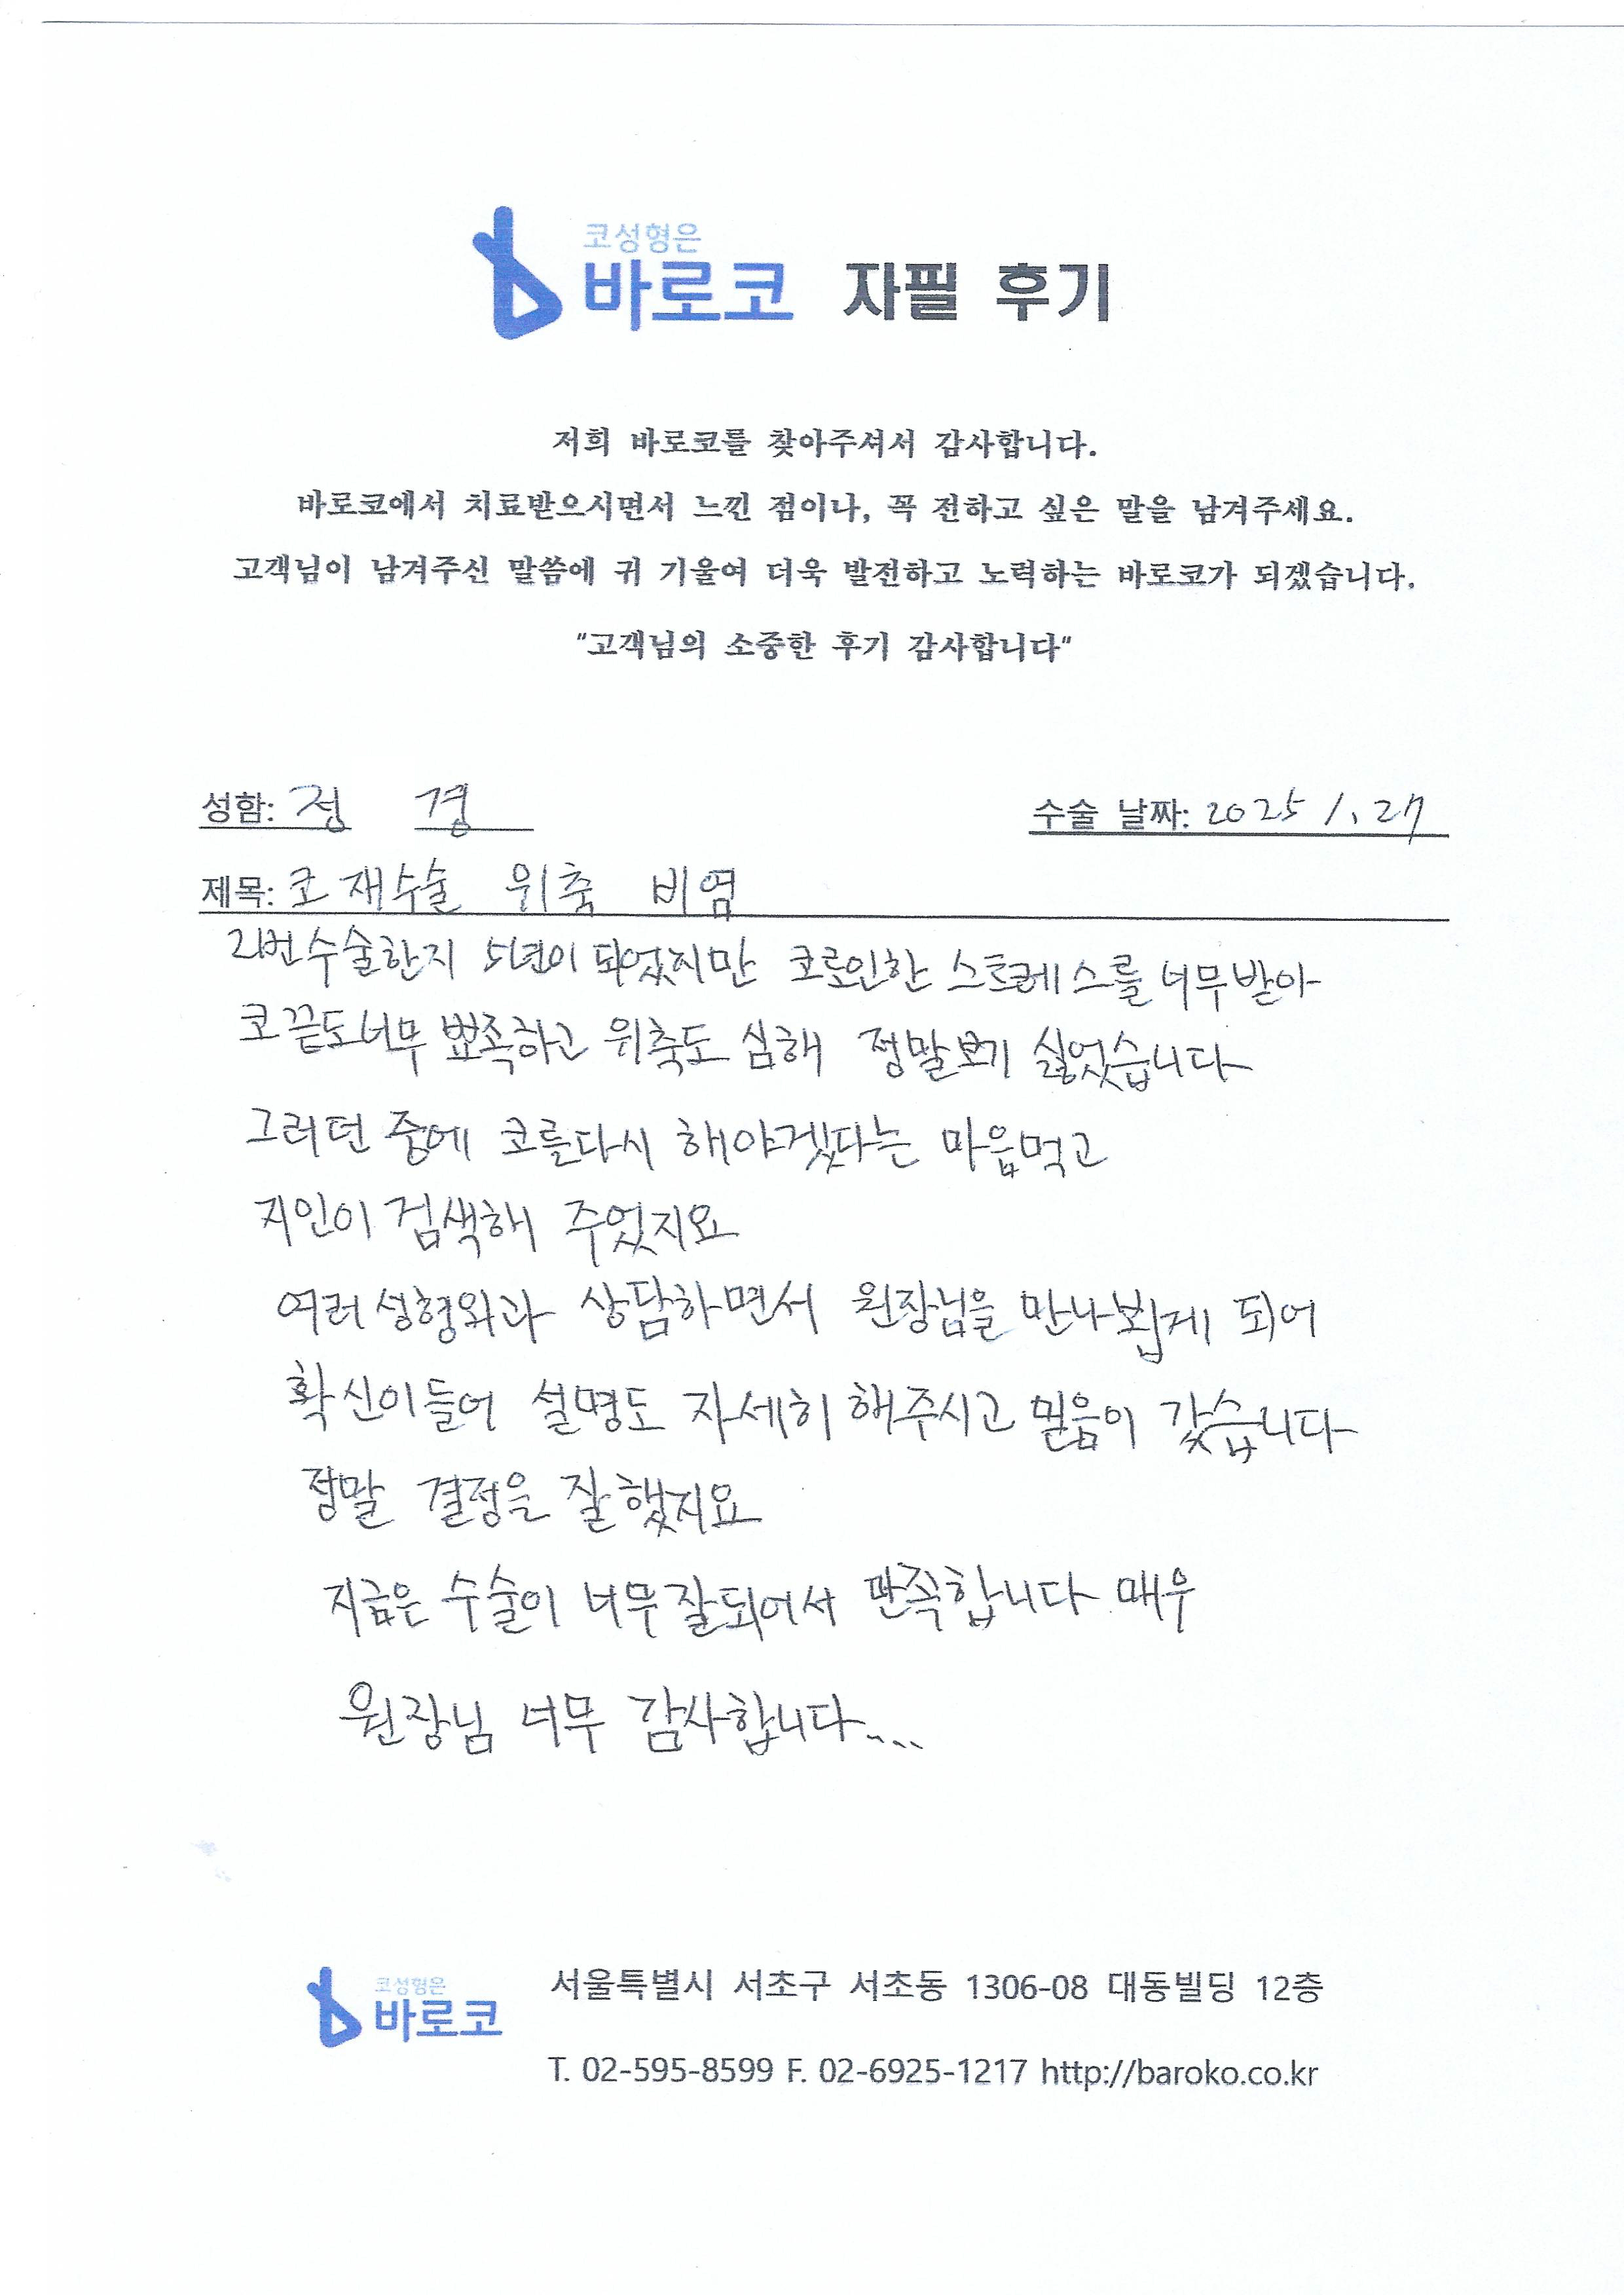 코성형은
바로코 자필 후기
저희 바로코를 찾아주셔서 감사합니다.
바로코에서 치료받으시면서 느낀 점이나, 꼭 전하고 싶은 말을 남겨주세요.
고객님이 남겨주신 말씀에 귀 기울여 더욱 발전하고 노력하는 바로코가 되겠습니다.
"고객님의 소중한 후기 감사합니다"
성함: 정 경 수술 날짜: 2025 1. 27
제목: 코 재수술 위축 비염
2번수술한지 5년이 되었지만 코로인한 스트레스를 너무받아
코끝도너무 뾰족하고 위축도 심해 정말보기 싫었습니다
그러던 중에 코를다시 해야겠다는 마음먹고
지인이 검색해 주었지요
여러성형외과 상담하면서 원장님을 만나뵙게 되어
확신이들어 설명도 자세히 해주시고 믿음이 갔습니다
정말 결정을 잘했지요
지금은 수술이 너무잘되어서 만족합니다 매우
원장님 너무 감사합니다....
코성형은
바로코
서울특별시 서초구 서초동 1306-08 대동빌딩 12층
T. 02-595-8599 F. 02-6925-1217 http://baroko.co.kr